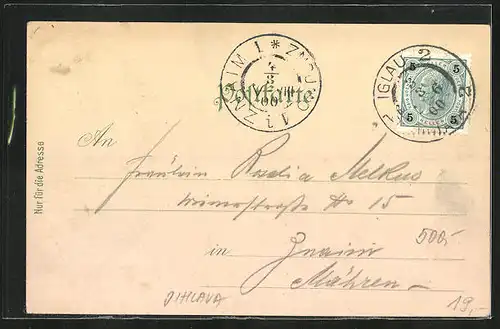 ZNAIM 1 * ZNOJMO 1
4/8
00
IGLAU 2
5 5
5 5
Postkarte
Nur für die Adresse
An
Fräulein Melkus
No 15
in Znaim
Mähren
500,-
JIHLAVA
19,-